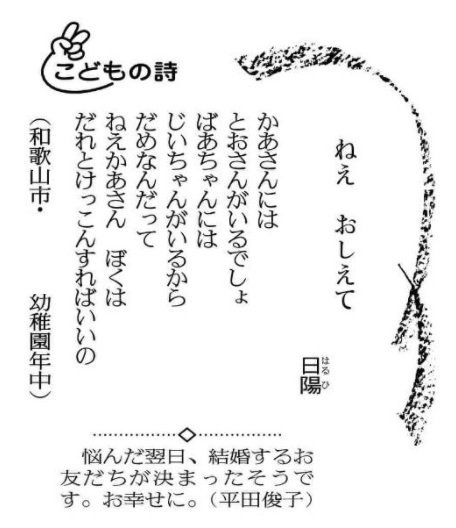 こどもの詩
ねえ おしえて
日陽
はるひ
かあさんには
とおさんがいるでしょ
ばあちゃんには
じいちゃんがいるから
だめなんだって
ねえかあさん ぼくは
だれとけっこんすればいいの
(和歌山市・ 幼稚園年中)
悩んだ翌日、結婚するお
友だちが決まったそうで
す。お幸せに。(平田俊子)